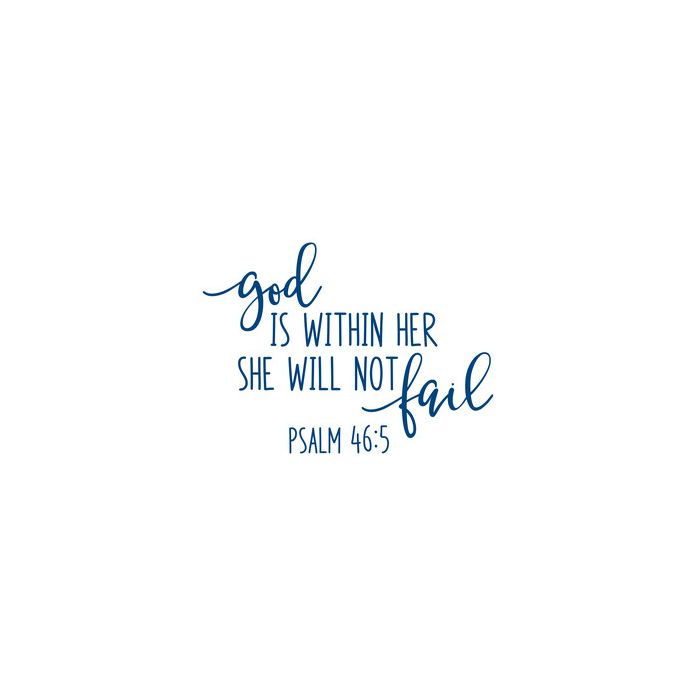 god
IS WITHIN HER
SHE WILL NOT fail
PSALM 46:5